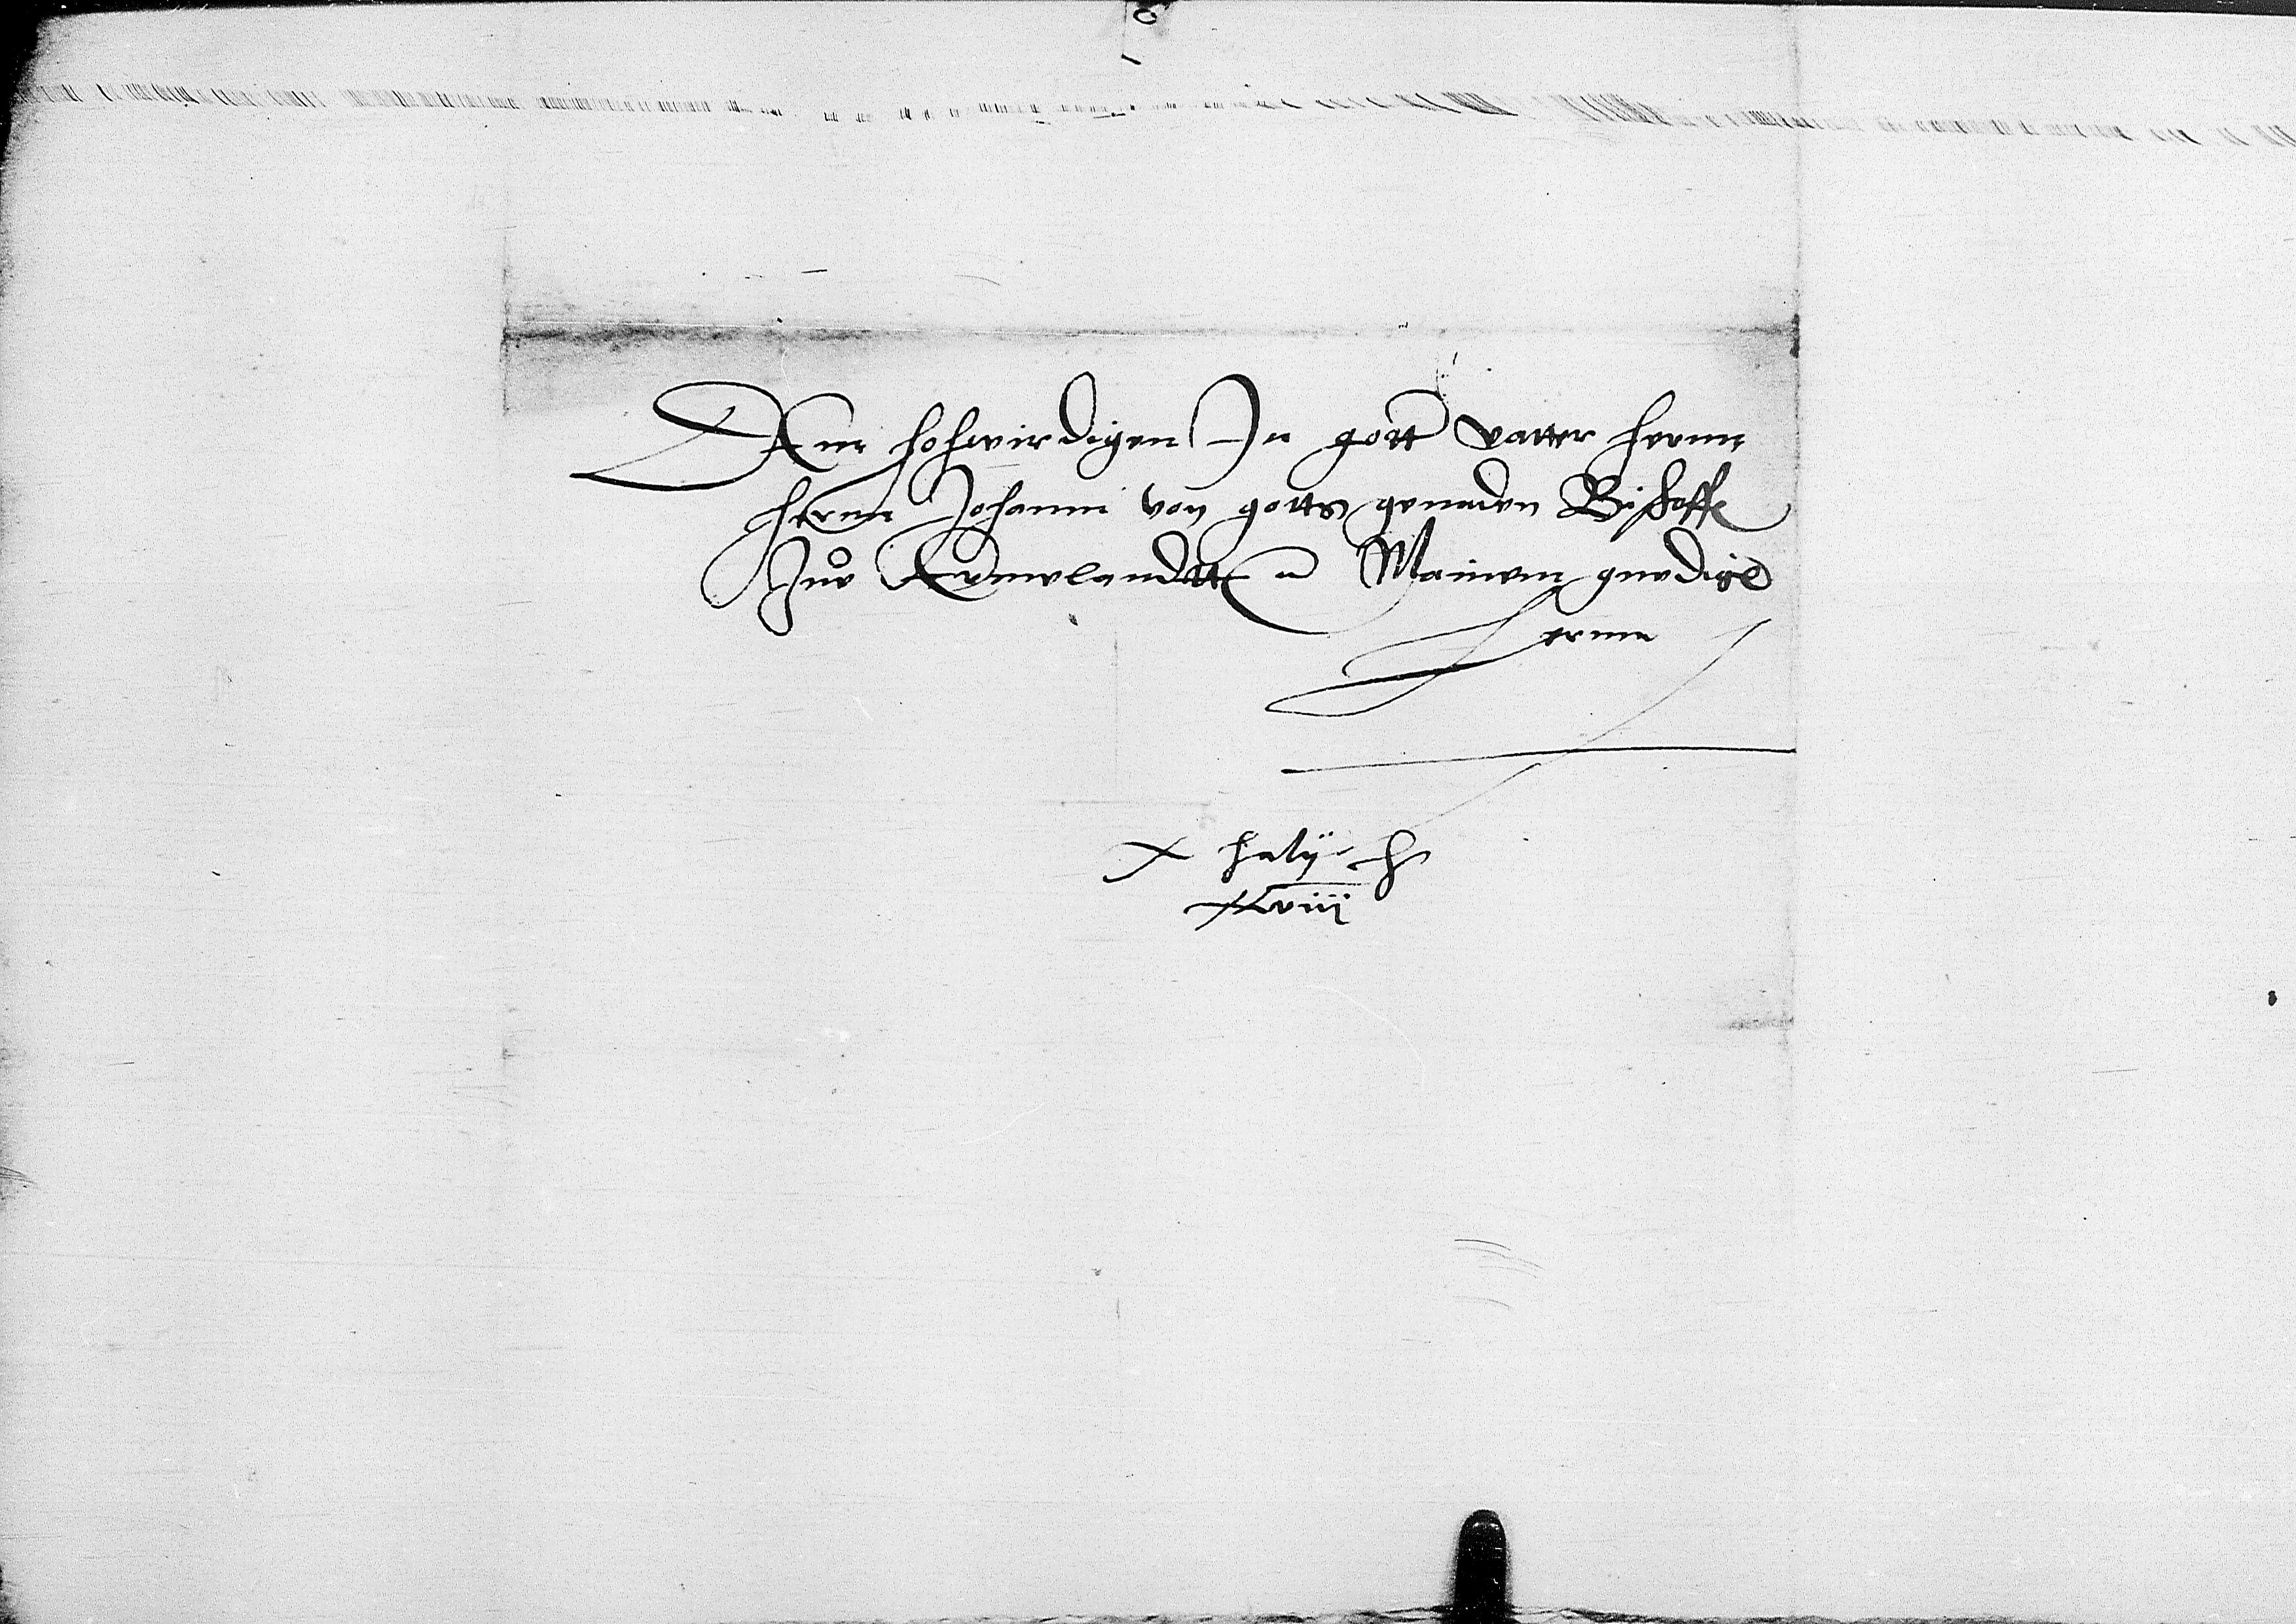 Dem hoherwirdigen In gott vatter herrnn
herrnn Johannn von gotts genaden Bischoffe
Zue Ermelandtt Mainem gnedigē
Herrnn
xviij